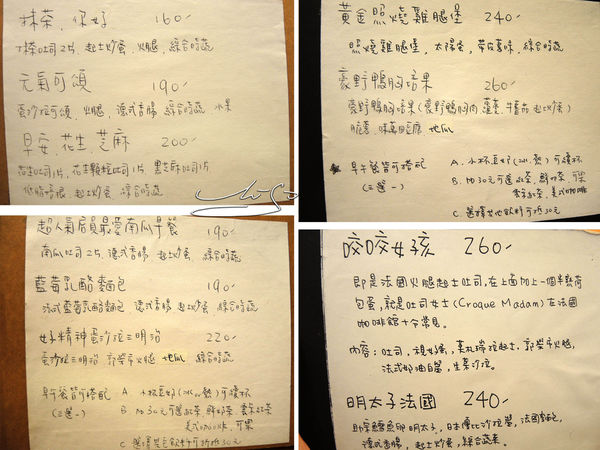 抹茶、你好 160.-
抹茶吐司2片、起士炒蛋、火腿、綜合時蔬
元氣可頌 190.-
蛋沙拉可頌、火腿、德式香腸、綜合時蔬、水果
早安、花生、芝麻 200.-
花生吐司1片、花生顆粒吐司1片、黑芝麻吐司1片
起士炒蛋、綜合時蔬
黃金照燒雞腿堡 240.-
照燒雞腿堡、太陽蛋、帶皮薯條、綜合時蔬
豪野鴨胸培果 260.-
豪野鴨胸培果(豪野鴨胸肉、蘆薈、牛番茄、起士炒蛋)
脆薯、味萬田豆腐、地瓜
早午餐皆可搭配
(三選一)
A. 小杯豆奶(冰、熱)可續杯
B. 加30元可選紅茶、鮮奶茶、可果
美式咖啡
C. 選擇其他飲料可折抵30元
超人氣店員最愛南瓜早餐 190.-
南瓜吐司2片、德式香腸、起士炒蛋、綜合時蔬
藍莓乳酪麵包 190.-
法式藍莓乳酪麵包、德式香腸、起士炒蛋、綜合時蔬
好精神蛋沙拉三明治 220.-
蛋沙拉三明治、郭榮市火腿、地瓜、綜合時蔬
早午餐皆可搭配
(三選一)
A. 小杯豆奶(冰、熱)可續杯
B. 加30元可選紅茶、鮮奶茶
美式咖啡、可果
C. 選擇其他飲料可折抵30元
咬咬女孩 260.-
即是法國火腿起士吐司,在上面加上一個半熟荷
包蛋,就是吐司女士(Croque Madam)在法國
咖啡館十分常見。
內容:吐司、水煮蛋、莫札瑞拉起士、郭榮市火腿、
法式奶油白醬、生菜沙拉。
明太子法國 240.-
鱈魚卵明太子、日本優比沙拉醬、法國麵包、
德式香腸、起士炒蛋、綜合蔬菜。